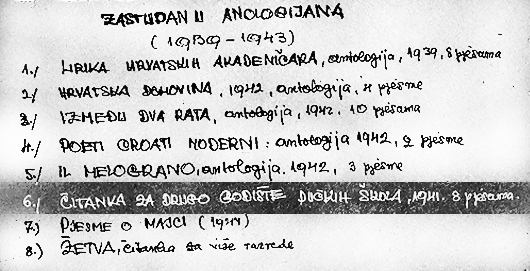 ZASTUPAN U ANOLOGIJAMA
(1939-1943)
1./ LIRIKA HRVATSKIH AKADEMIČARA, antologija, 1939, 8 pjesama
2/ HRVATSKA DOMOVINA, 1942, antologija, 4 pjesme
3./ IZMEĐU DVA RATA, antologija, 1942. 10 pjesama
4./ POETI CROATI MODERNI: antologija 1942, 2 pjesme
5./ IL MELOGRANO, antologija. 1942, 3 pjesme
6./ ČITANKA ZA DRUGO GODIŠTE PUČKIH ŠKOLA, 1941. 8 pjesama.
7.) PJESME O MAJCI (1941)
8.) ŽETVA, čitanka za više razrede